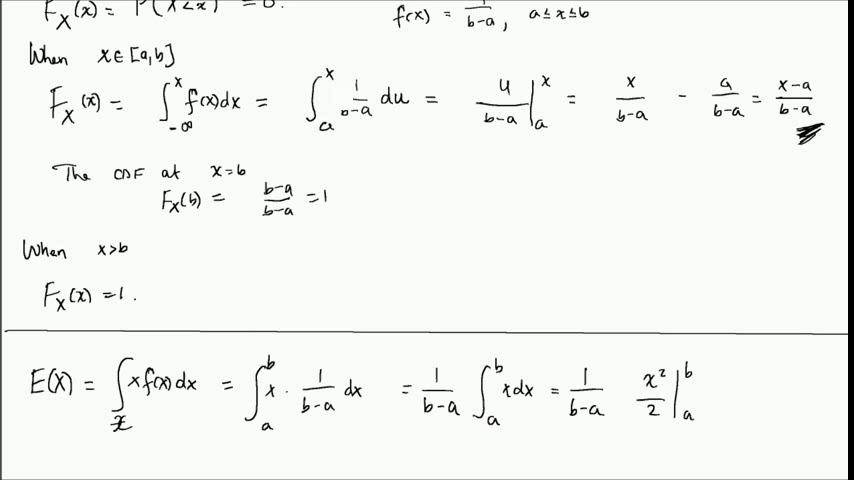 F_X(x) = P(X<x) = 0.
f(x) = 1/(b-a), a≤x≤b
When x∈[a,b]
F_X(x) = ∫_{-∞}^{x} f(x)dx = ∫_{a}^{x} 1/(b-a) du = u/(b-a) |_{a}^{x} = x/(b-a) - a/(b-a) = (x-a)/(b-a)
The CDF at x=b
F_X(b) = (b-a)/(b-a) = 1
When x>b
F_X(x) = 1.
E(X) = ∫_{x} x f(x) dx = ∫_{a}^{b} x · 1/(b-a) dx = 1/(b-a) ∫_{a}^{b} x dx = 1/(b-a) x²/2 |_{a}^{b}